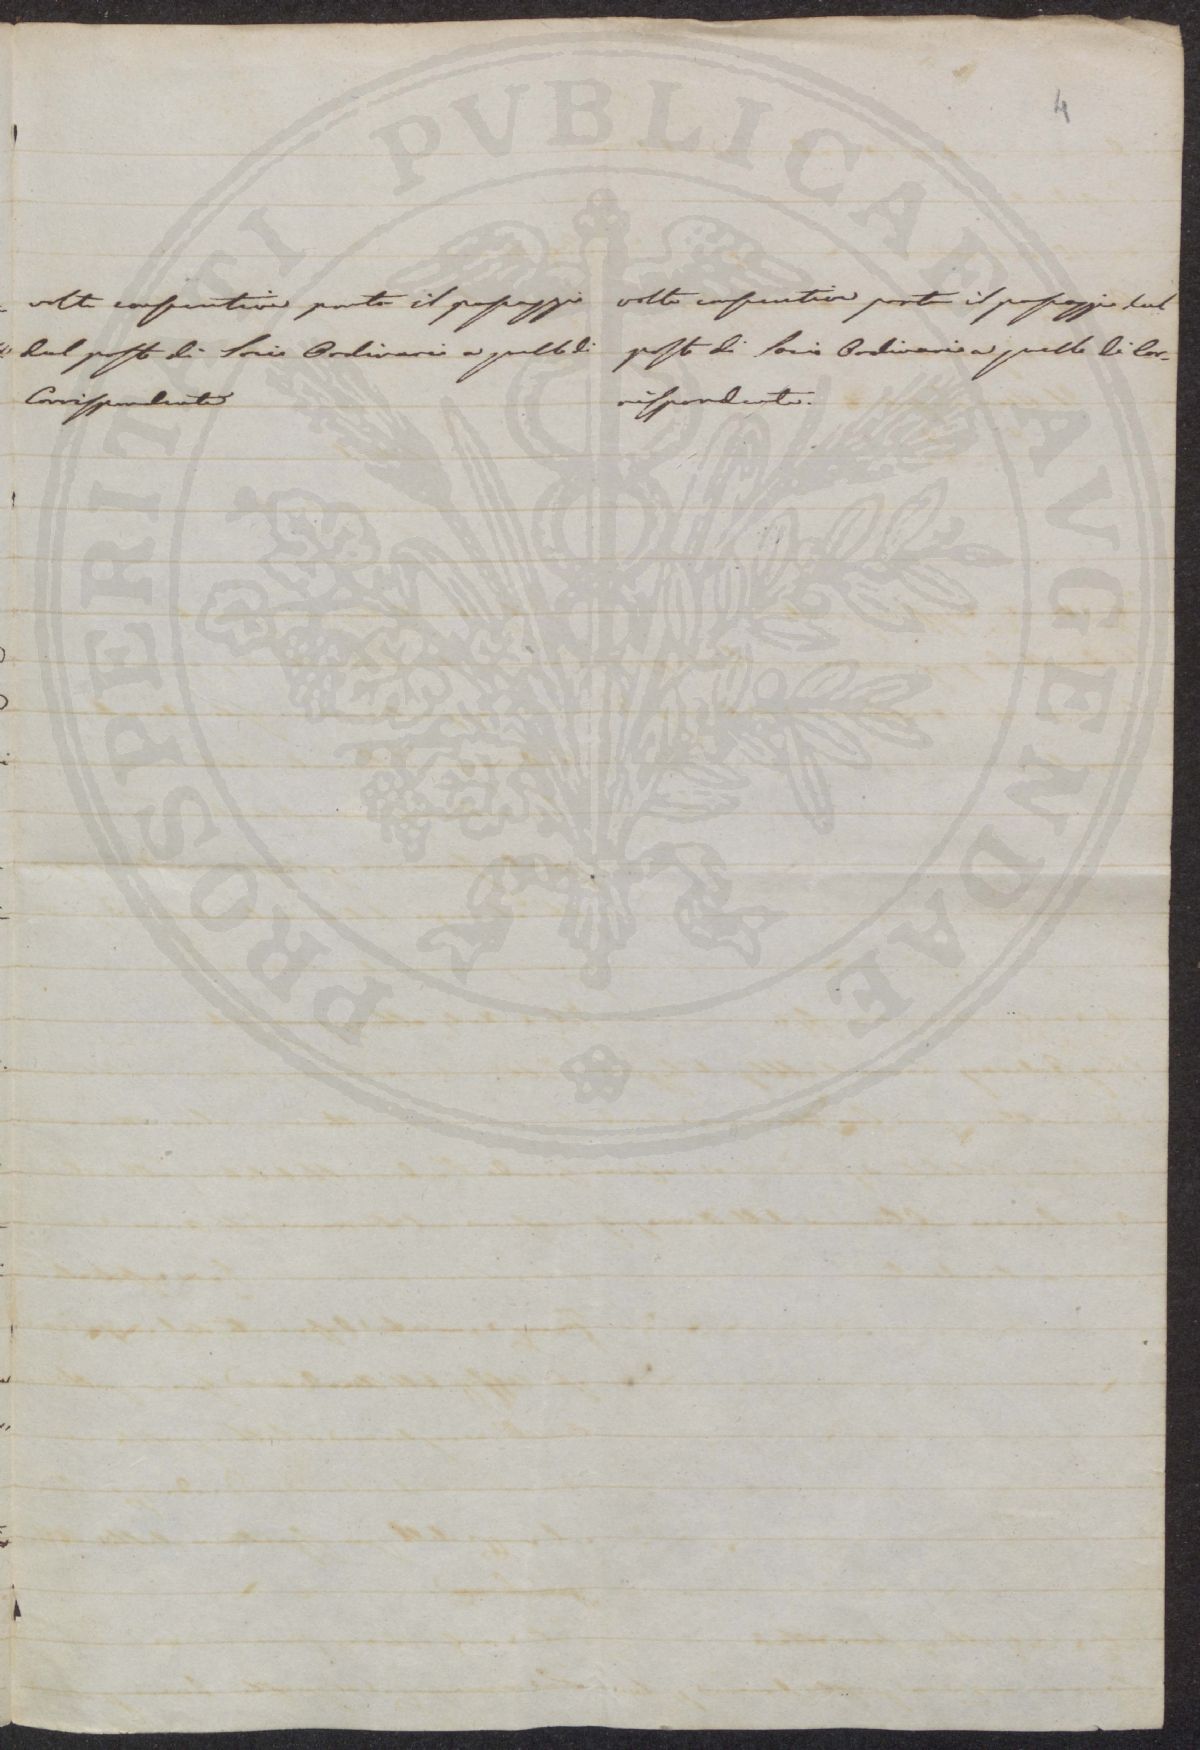 4
volte consecutive porta il passaggio
dal posto di Socio Ordinario a quello di
Corrispondente
volte consecutive porta il passaggio dal
posto di Socio Ordinario a quello di Cor=
rispondente.
PROSPERITATI PVBLICAE AVGENDAE